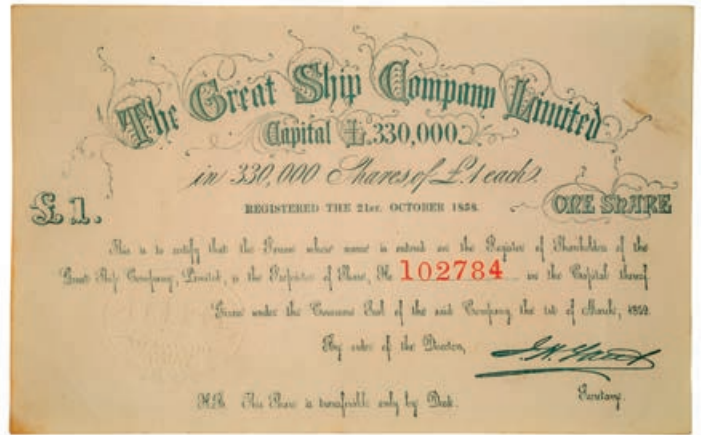 The Great Ship Company Limited
Capital £.330,000.
in 330,000 Shares of £1 each.
£1.
REGISTERED THE 21st. OCTOBER 1858.
ONE SHARE
This is to certify that the Person whose name is entered on the Register of Shareholders of the
Great Ship Company, Limited, is the Proprietor of Share, No 102784 in the Capital thereof
Given under the Common Seal of the said Company the 1st of March, 1859.
By order of the Directors,
Secretary.
N.B. This Share is transferable only by Deed.